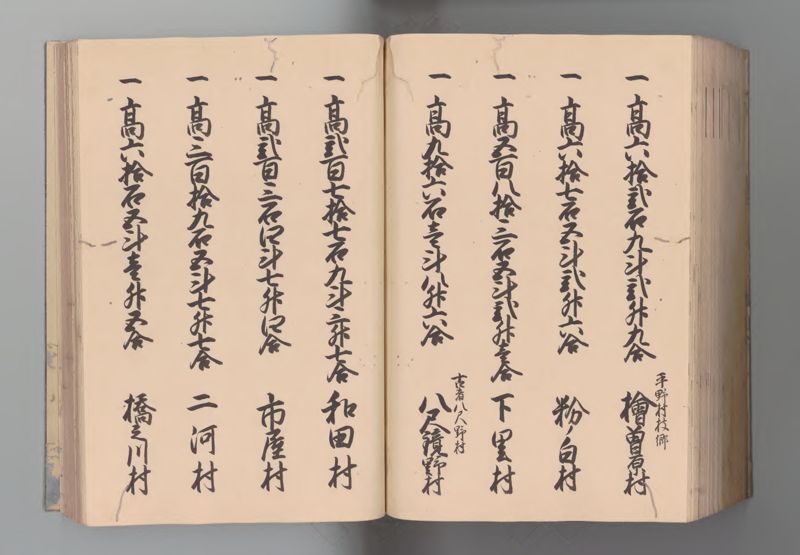 一 高六拾弐石九斗弐升九合 檜曽原村
平野村枝郷
一 高六拾七石五斗弐升六合 粉ノ白村
一 高五百八拾三石五斗弐升壱合 下里村
一 高九拾六石壱斗八升六合 八尺鏡野村
古者八尺野村
一 高弐百七拾七石九斗三升七合 和田村
一 高弐百三石四斗七升四合 市屋村
一 高三百拾九石五斗七升七合 二河村
一 高六拾石五斗壱升五合 橋之川村